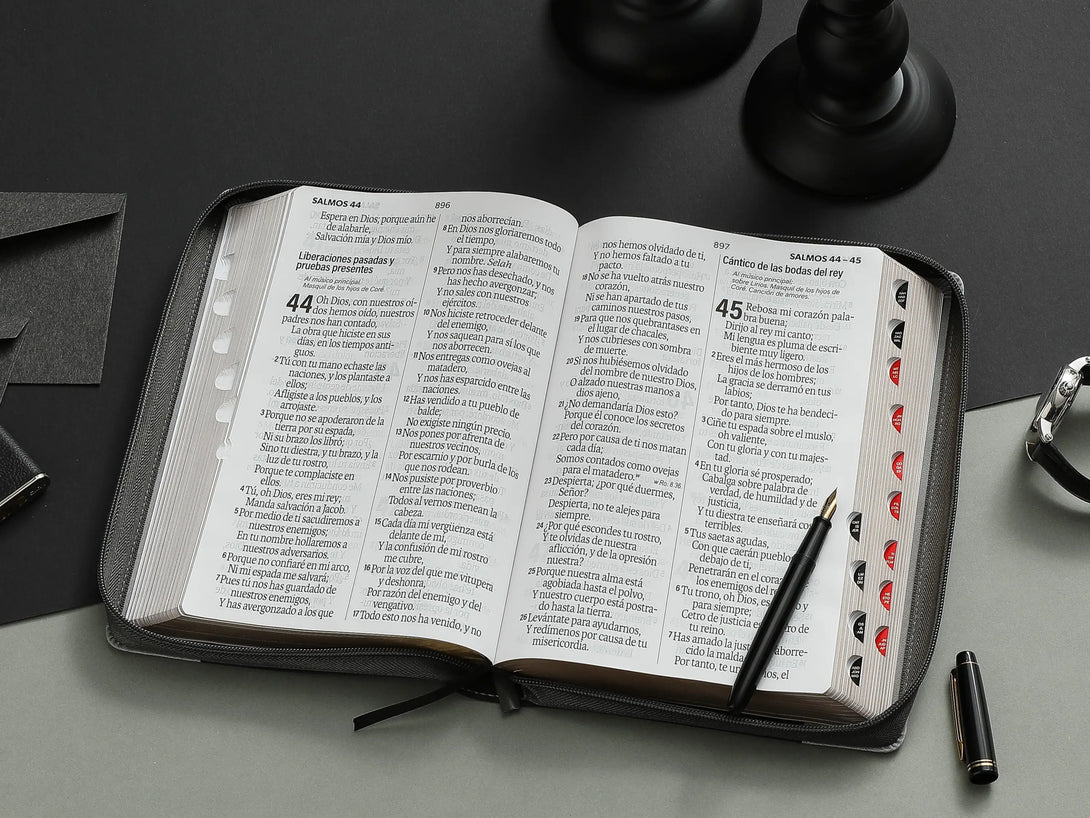 SALMOS 44
896
Espera en Dios; porque aún he
de alabarle,
Salvación mía y Dios mío.
Liberaciones pasadas y
pruebas presentes
Al músico principal.
Masquil de los hijos de Coré.
44 Oh Dios, con nuestros oí-
dos hemos oído, nuestros
padres nos han contado,
La obra que hiciste en sus
días, en los tiempos anti-
guos.
2 Tú con tu mano echaste las
naciones, y los plantaste a
ellos;
Afligiste a los pueblos, y los
arrojaste.
3 Porque no se apoderaron de la
tierra por su espada,
Ni su brazo los libró;
Sino tu diestra, y tu brazo, y la
luz de tu rostro,
Porque te complaciste en
ellos.
4 Tú, oh Dios, eres mi rey;
Manda salvación a Jacob.
5 Por medio de ti sacudiremos a
nuestros enemigos;
En tu nombre hollaremos a
nuestros adversarios.
6 Porque no confiaré en mi arco,
Ni mi espada me salvará;
7 Pues tú nos has guardado de
nuestros enemigos,
Y has avergonzado a los que
nos aborrecían.
8 En Dios nos gloriaremos todo
el tiempo,
Y para siempre alabaremos tu
nombre. Selah
9 Pero nos has desechado, y nos
has hecho avergonzar;
Y no sales con nuestros
ejércitos.
10 Nos hiciste retroceder delante
del enemigo,
Y nos saquean para sí los que
nos aborrecen.
11 Nos entregas como ovejas al
matadero,
Y nos has esparcido entre las
naciones.
12 Has vendido a tu pueblo de
balde;
No exigiste ningún precio.
13 Nos pones por afrenta de
nuestros vecinos,
Por escarnio y por burla de los
que nos rodean.
14 Nos pusiste por proverbio
entre las naciones;
Todos al vernos menean la
cabeza.
15 Cada día mi vergüenza está
delante de mí,
Y la confusión de mi rostro
me cubre,
16 Por la voz del que me vitupera
y deshonra,
Por razón del enemigo y del
vengativo.
17 Todo esto nos ha venido, y no
897
SALMOS 44–45
nos hemos olvidado de ti,
Y no hemos faltado a tu
pacto.
18 No se ha vuelto atrás nuestro
corazón,
Ni se han apartado de tus
caminos nuestros pasos,
19 Para que nos quebrantases en
el lugar de chacales,
Y nos cubrieses con sombra
de muerte.
20 Si nos hubiésemos olvidado
del nombre de nuestro Dios,
O alzado nuestras manos a
dios ajeno,
21 ¿No demandaría Dios esto?
Porque él conoce los secretos
del corazón.
22 Pero por causa de ti nos matan
cada día;
Somos contados como ovejas
para el matadero.w w Ro. 8.36
23 Despierta; ¿por qué duermes,
Señor?
Despierta, no te alejes para
siempre.
24 ¿Por qué escondes tu rostro,
Y te olvidas de nuestra
aflicción, y de la opresión
nuestra?
25 Porque nuestra alma está
agobiada hasta el polvo,
Y nuestro cuerpo está postra-
do hasta la tierra.
26 Levántate para ayudarnos,
Y redímenos por causa de tu
misericordia.
Cántico de las bodas del rey
Al músico principal;
sobre Lirios. Masquil de los hijos de
Coré. Canción de amores.
45 Rebosa mi corazón pala-
bra buena;
Dirijo al rey mi canto;
Mi lengua es pluma de escri-
biente muy ligero.
2 Eres el más hermoso de los
hijos de los hombres;
La gracia se derramó en tus
labios;
Por tanto, Dios te ha bendeci-
do para siempre.
3 Ciñe tu espada sobre el muslo,
oh valiente,
Con tu gloria y con tu majes-
tad.
4 En tu gloria sé prosperado;
Cabalga sobre palabra de
verdad, de humildad y de
justicia,
Y tu diestra te enseñará co
terribles.
5 Tus saetas agudas,
Con que caerán pueblo
debajo de ti,
Penetrarán en el cora
los enemigos del re
6 Tu trono, oh Dios, es
para siempre;
Cetro de justicia es ro de
tu reino.
7 Has amado la jus aborre-
cido la malda
Por tanto, te un os, el